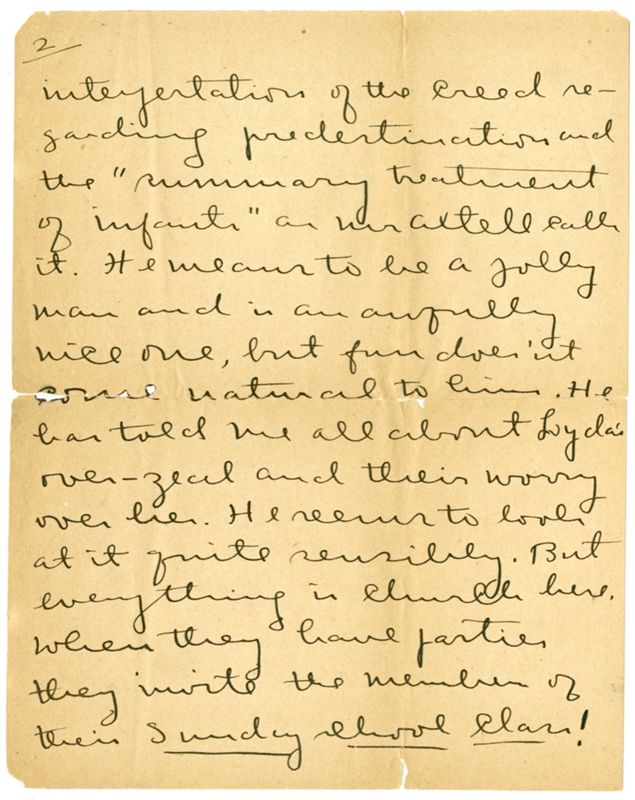 2
interpertation of the creed re-
garding predestination and
the "summary treatment
of infants" as Mr Axtell calls
it. He means to be a jolly
man and is an awfully
nice one, but fun does'nt
come natural to him. He
has told me all about Lyda's
over-zeal and their worry
over her. He seems to look
at it quite sensibly. But
everything is church here.
When they have parties
they invite the members of
their Sunday School Class!